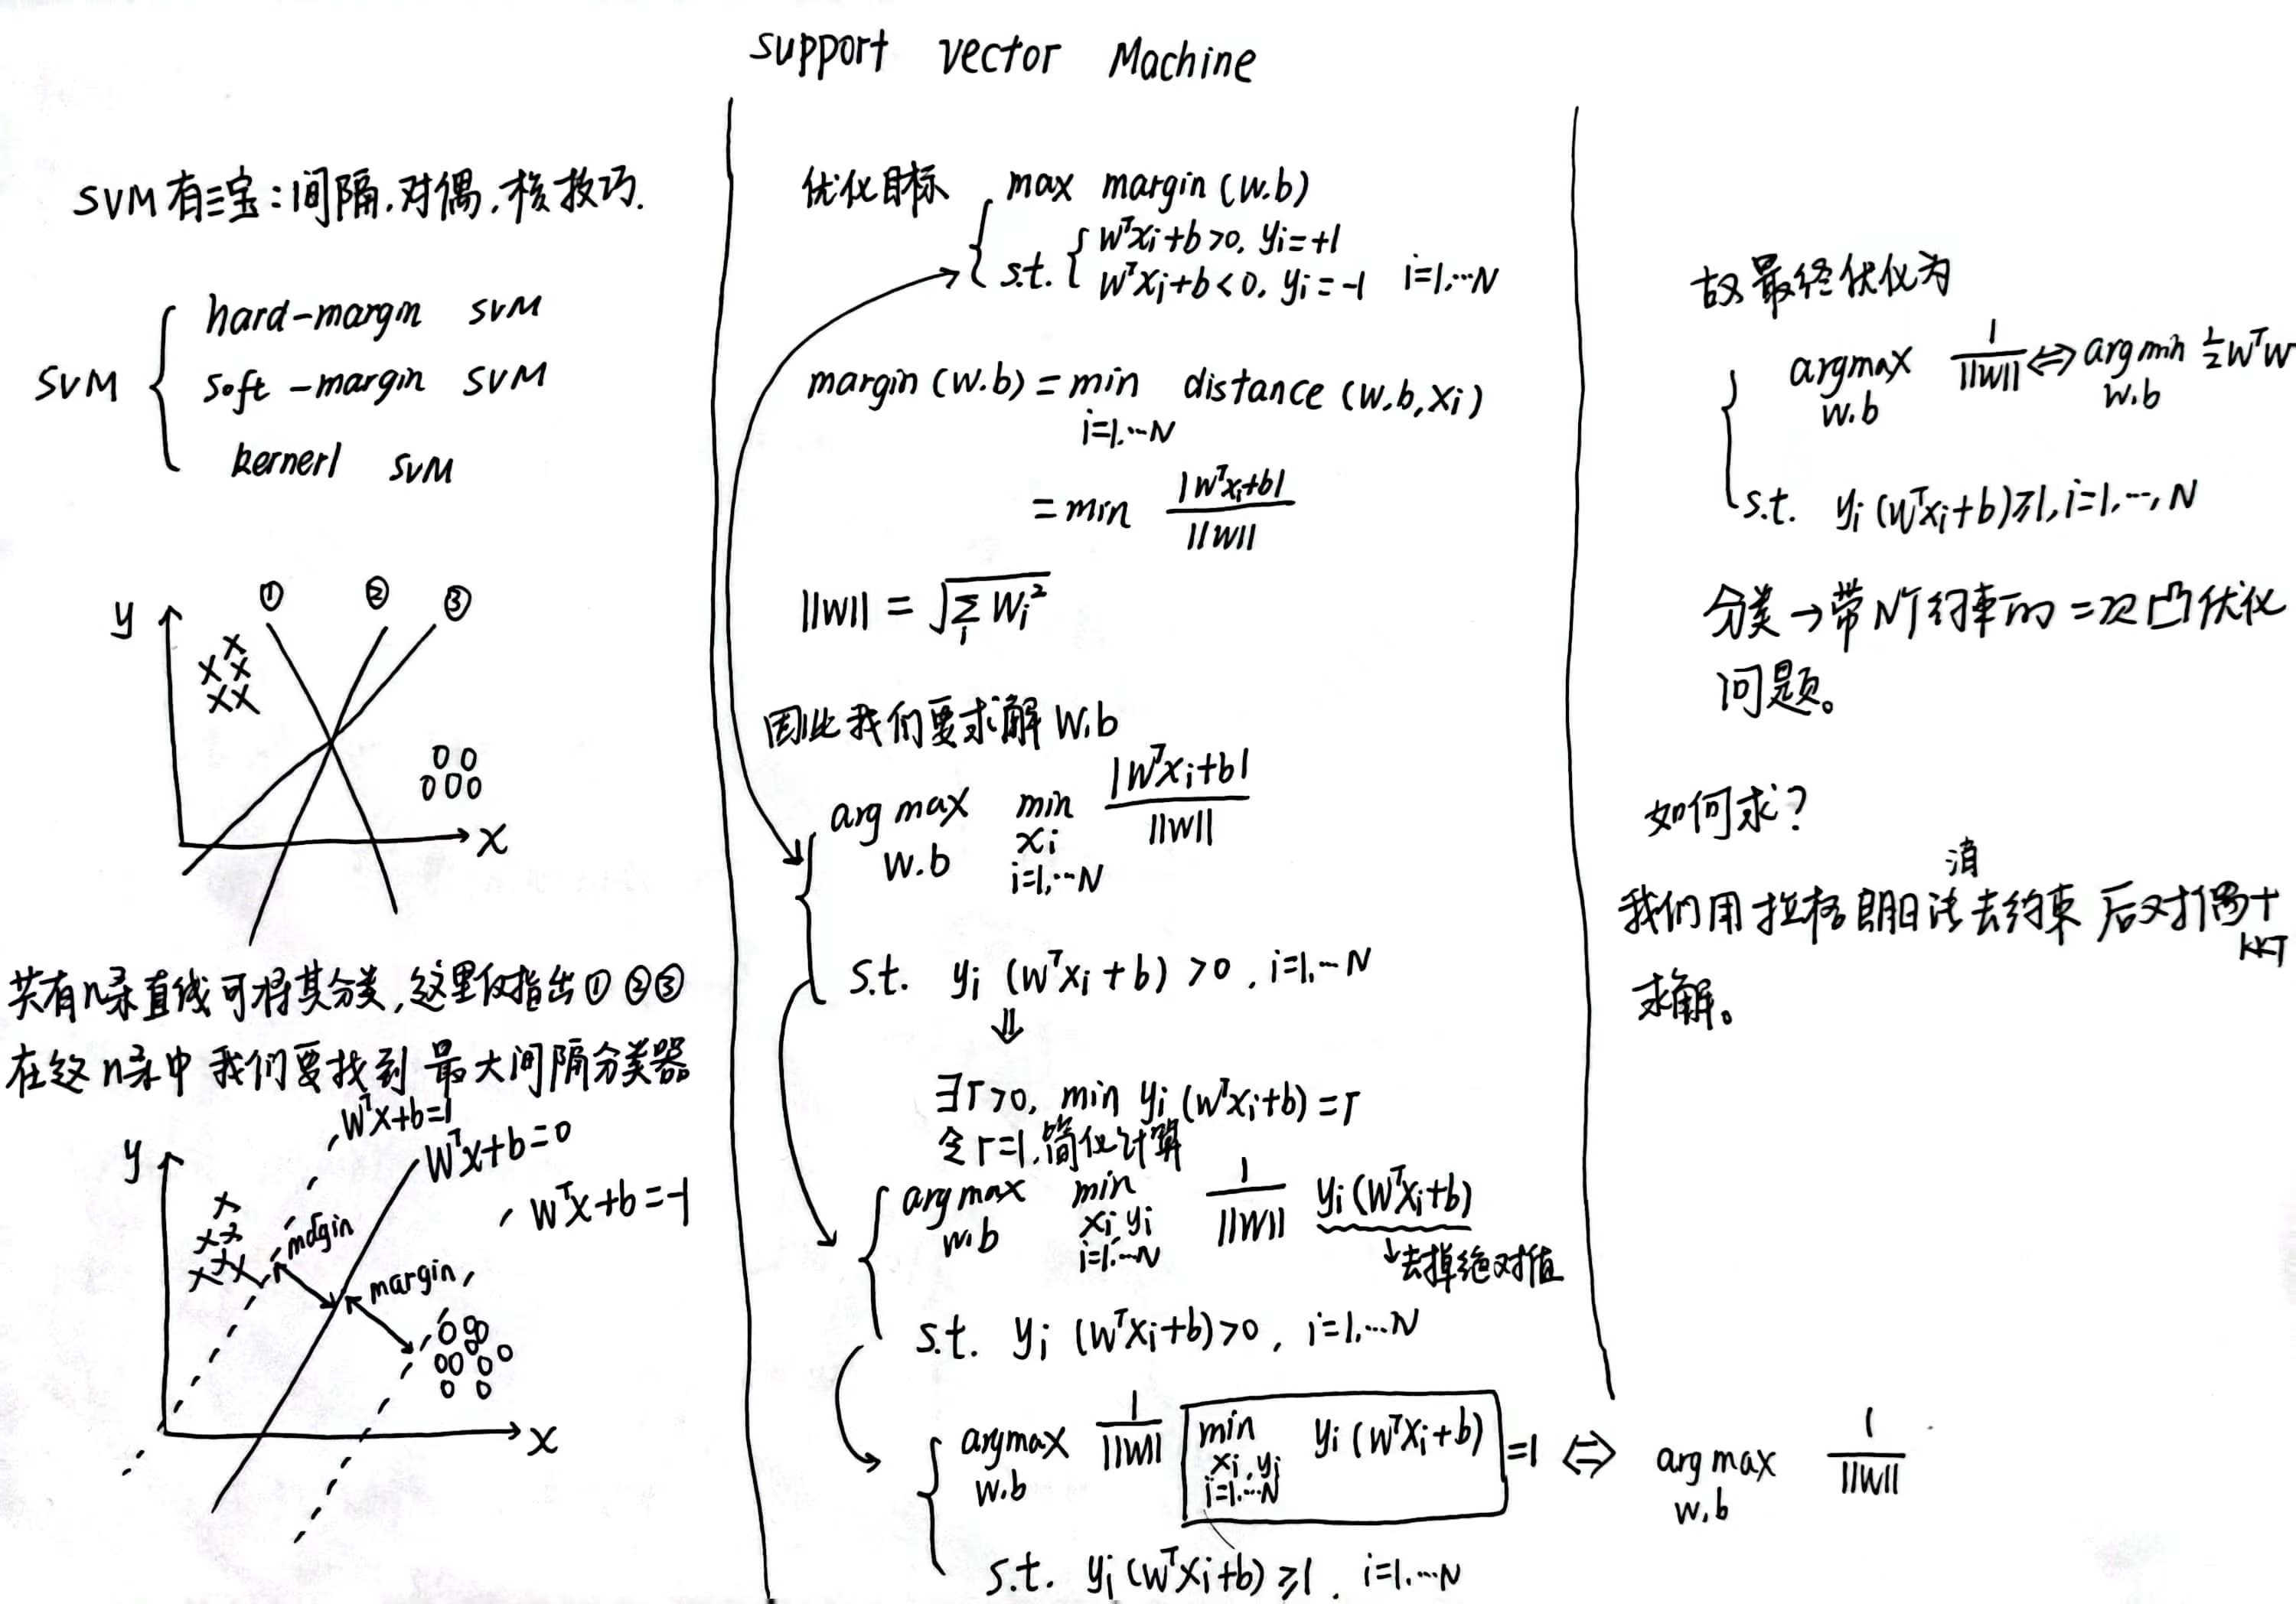 support vector Machine
SVM有三宝:间隔.对偶.核技巧.
SVM
hard-margin SVM
soft-margin SVM
kernerl SVM
y
① ② ③
x
共有n条直线可将其分类,这里仅指出①②③
在这n条中我们要找到最大间隔分类器
wᵀx+b=1
wᵀx+b=0
wᵀx+b=-1
y
margin
margin
x
优化目标 max margin(w.b)
s.t. { wᵀxᵢ+b>0, yᵢ=+1
wᵀxᵢ+b<0, yᵢ=-1 i=1,…N
margin(w.b) = min distance(w.b,xᵢ)
i=1,…N
= min |wᵀxᵢ+b| / ||w||
||w|| = √(∑ᵢ wᵢ²)
因此我们要求解w.b
arg max min |wᵀxᵢ+b| / ||w||
w.b xᵢ
i=1,…N
s.t. yᵢ(wᵀxᵢ+b)>0, i=1,…N
⇓
∃r>0, min yᵢ(wᵀxᵢ+b)=r
令r=1,简化计算
arg max min 1/||w|| yᵢ(wᵀxᵢ+b)
w.b xᵢ,yᵢ
i=1,…N
↓去掉绝对值
s.t. yᵢ(wᵀxᵢ+b)>0, i=1,…N
argmax 1/||w|| min yᵢ(wᵀxᵢ+b) =1 ⇔ arg max 1/||w||
w.b xᵢ,yᵢ w.b
i=1,…N
s.t. yᵢ(wᵀxᵢ+b)≥1, i=1,…N
故最终优化为
argmax 1/||w|| ⇔ arg min ½wᵀw
w.b w.b
s.t. yᵢ(wᵀxᵢ+b)≥1, i=1,…,N
分类→带N个约束的二次凸优化
问题。
如何求?
我们用拉格朗日法消去约束后对偶+KKT
求解。